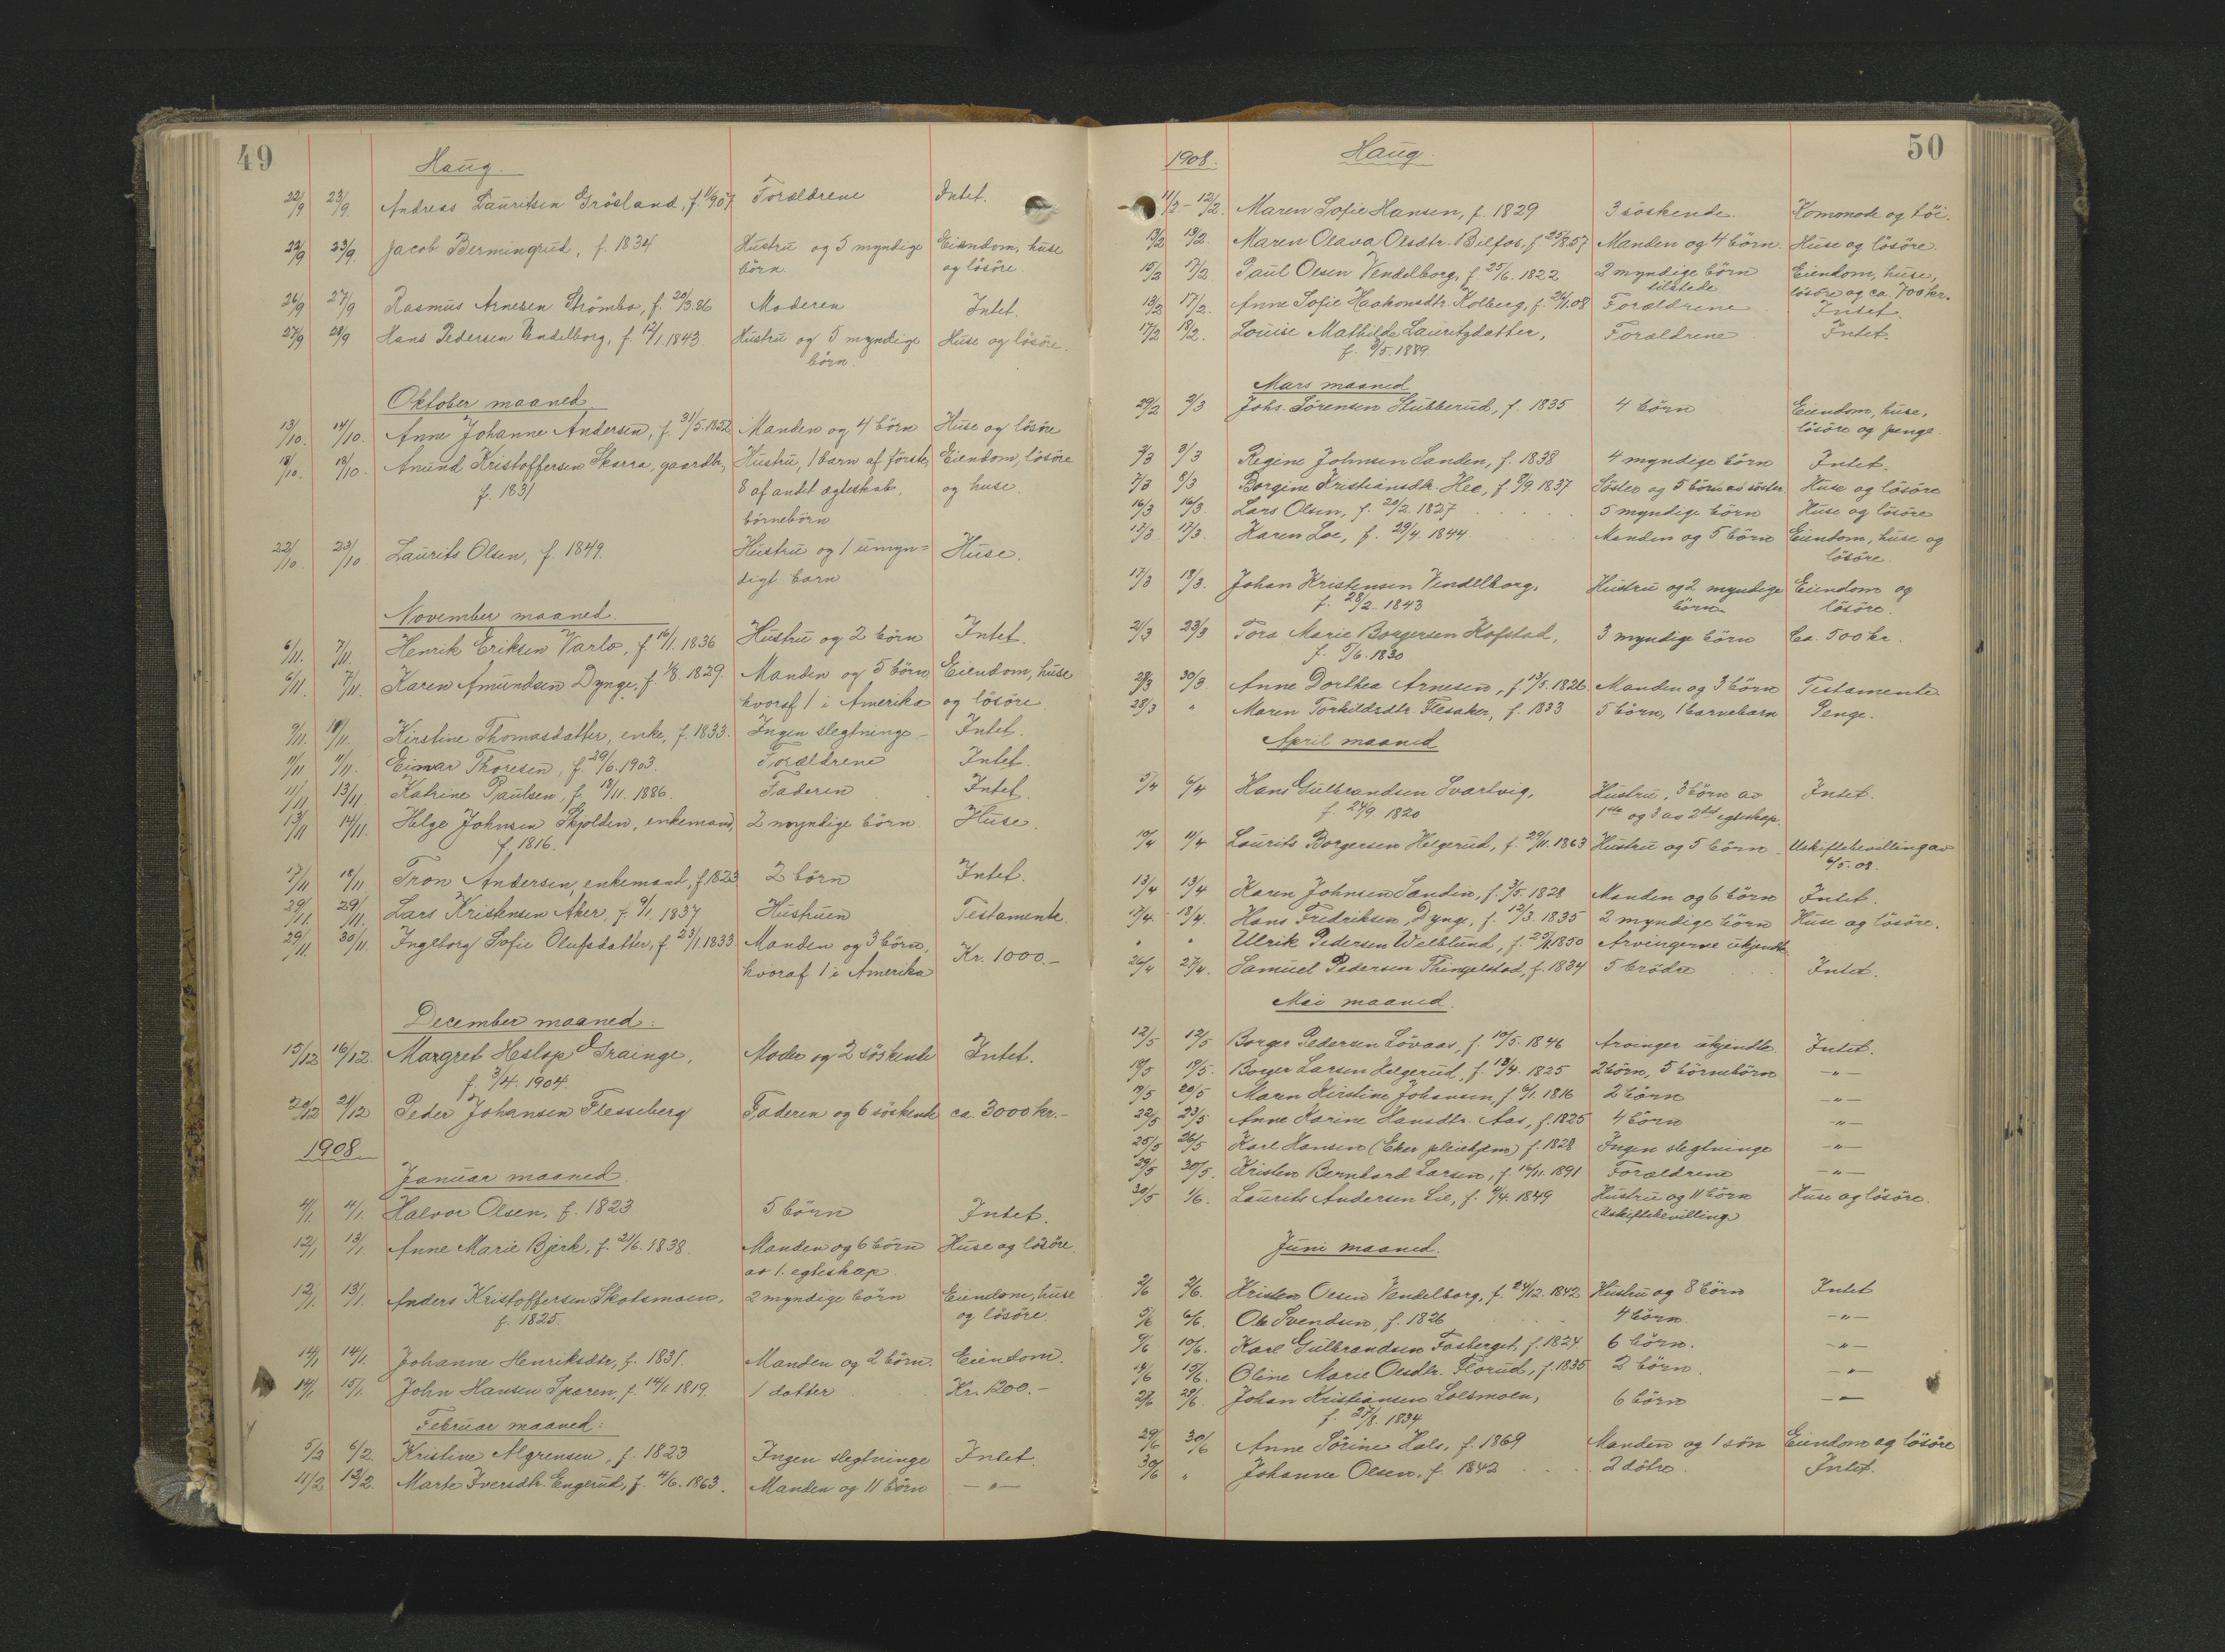 49
Haug.
22/9 23/9. Andreas Lauritsen Grösland, f. 1/9.07 Forældrene Intet.
22/9 23/9. Jacob Bermingrud, f. 1834 Hustru og 5 myndige Eiendom, huse
börn. og lösöre.
26/9 27/9 Rasmus Arnesen Strömbo, f. 20/3.86 Moderen Intet.
27/9 28/9 Hans Pedersen Vendelborg, f. 12/1.1843. Hustru og 5 myndige Huse og lösöre.
börn.
Oktober maaned
13/10. 14/10. Anne Johanne Andersen, f. 31/5.1852 Manden og 4 börn Huse og lösöre
18/10. 18/10. Amund Kristoffersen Skarra, gaardbr., Hustru, 1 barn af förste, Eiendom, lösöre
f. 1831 8 af andet ægteskab, og huse.
börnebörn
22/10. 23/10 Laurits Olsen, f. 1849. Hustru og 1 umyn= Huse.
digt barn
November maaned.
6/11. 7/11. Henrik Eriksen Varlo, f. 16/1.1836 Hustru og 2 börn Intet.
6/11. 7/11. Karen Amundsen Dynge, f. 1/8.1829. Manden og 5 börn, Eiendom, huse
hvoraf 1 i Amerika og lösöre.
9/11. 10/11. Kirstine Thomasdatter, enke, f. 1833. Ingen slegtninge – Intet.
11/11 11/11. Einar Thoresen, f. 29/6.1903. Forældrene Intet.
11/11 13/11. Katrine Paulsen, f. 18/11.1886. Faderen Intet.
13/11 14/11. Helge Johnsen Skjolden, enkemand, 2 myndige börn. Huse.
f. 1816.
17/11 18/11 Tron Andersen, enkemand, f. 1823 2 börn Intet.
29/11. 29/11. Lars Kristensen Aker, f. 9/1.1837 Hustruen Testamente.
29/11. 30/11. Ingeborg Sofie Olufsdatter, f. 23/1.1833. Manden og 3 börn, Kr. 1000.–
hvoraf 1 i Amerika
December maaned:
15/12 16/12. Margret Heslop Grainge, Moder og 2 söskende Intet.
f. 3/4.1904.
20/12 21/12 Peder Johansen Flesseberg Faderen og 6 söskende ca. 3000 kr.–
1908
Januar maaned.
4/1. 4/1. Halvor Olsen, f. 1823 5 börn Intet.
12/1 13/1. Anne Marie Bjerk, f. 21/6.1838. Manden og 6 börn Huse og lösöre.
av 1. egteskap.
12/1. 13/1. Anders Kristoffersen Skotsmoen, 2 myndige börn Eiendom, huse
f. 1825. og lösöre.
14/1 14/1. Johanne Henriksdtr, f. 1831. Manden og 2 börn. Eiendom.
14/1 15/1. John Hansen Sparen, f. 14/1 1819. 1 datter Kr. 1200.–
Februar maaned:
5/2 6/2. Kristine Algrensen, f. 1823 Ingen slegtninge Intet.
11/2 12/2. Marte Iversdtr. Engerud, f. 4/6.1863. Manden og 11 börn – " –
50
1908. Haug.
11/2 – 12/2. Maren Sofie Hansen, f. 1829 3 söskende. Kommode og töi.
13/2 13/2. Maren Olava Olsdtr. Bilfos, f. 25/8.57 Manden og 4 börn. Huse og lösöre.
15/2 17/2. Paul Olsen Vendelborg, f. 25/6.1822 2 myndige börn Eiendom, huse,
tilstede lösöre og ca. 700 kr.
13/2 17/2. Anne Sofie Haakonsdtr. Kolberg, f. 24/1.08 Forældrene Intet.
17/2 18/2. Louise Mathilde Lauritzdatter, Forældrene Intet.
f. 3/5.1889.
Mars maaned
29/2 2/3 Johs. Sörensen Stubberud, f. 1835 4 börn Eiendom, huse,
lösöre og penge.
3/3 3/3 Regine Johnsen Sanden, f. 1838 4 myndige börn Intet.
7/3 9/3 Borgine Kristiansdtr. Hee, f. 8/9.1837 Söster og 5 börn av söster Huse og lösöre
16/3 16/3. Lars Olsen, f. 20/2.1827 5 myndige börn Huse og lösöre
17/3 17/3. Karen Loe, f. 29/4.1844 Manden og 5 börn Eiendom, huse og
lösöre.
17/3 18/3. Johan Kristensen Vendelborg, Hustru og 2 myndige Eiendom og
f. 28/2.1843 börn lösöre.
21/3 23/3 Tora Marie Borgersen Hofstad, 3 myndige börn Ca. 500 kr.
f. 5/6.1830
28/3 30/3. Anne Dorthea Arnesen, f. 13/5.1826. Manden og 3 börn Testamente
28/3 " Maren Torkildsdtr. Flesaker, f. 1833 5 börn, 1 barnebarn Penge.
April maaned
5/4 6/4 Hans Gulbrandsen Svartvig, Hustru, 3 börn av Intet.
f. 24/9.1820 1ste og 3 av 2det egteskap.
10/4 11/4 Laurits Borgersen Helgerud, f. 29/11.1863 Hustru og 5 börn. Uskiftebevilling av
6/5.08.
13/4 13/4 Karen Johnsen Sanden, f. 3/5.1828 Manden og 6 börn Intet.
17/4. 18/4. Hans Fredriksen Dynge, f. 12/3.1835 2 myndige börn Huse og lösöre.
" " Ulrik Pedersen Welblund, f. 25/1.1850 Arvingerne ukjendte
26/4 27/4. Samuel Pedersen Thingelstad, f. 1834 5 brödre Intet.
Mai maaned.
12/5 12/5 Borger Pedersen Lövaas, f. 10/5.1846 Arvinger ukjendte. Intet.
19/5 19/5. Borger Larsen Helgerud, f. 18/4.1825 2 börn, 5 börnebörn – " –
19/5 20/5 Maren Kirstine Johansen, f. 6/1.1816 2 börn – " –
22/5 23/5 Anne Karine Hansdtr. Aas, f. 1825 4 börn – " –
25/5 26/5 Karl Hansen (Eker pleiehjem) f. 1828 Ingen slegtninge – " –
29/5 30/5. Kristen Bernhard Larsen, f. 16/11.1891 Forældrene – " –
30/5 1/6. Laurits Andersen Lie, f. 4/4.1849 Hustru og 11 börn Huse og lösöre.
(Uskiftebevilling)
Juni maaned.
2/6 2/6. Kristen Olsen Vendelborg, f. 24/12.1842 Hustru og 8 börn Intet
5/6 6/6. Ole Svendsen, f. 1826 4 börn. – " –
9/6 10/6. Karl Gulbrandsen Fosberget, f. 1824. 6 börn. – " –
14/6 15/6. Oline Marie Olsdtr. Florud, f. 1835 2 börn. – " –
27/6 29/6. Johan Kristiansen Loesmoen, 6 börn – " –
f. 27/8.1834
29/6 30/6 Anne Sörine Hals, f. 1869 Manden og 1 sön Eiendom og lösöre
30/6 " Johanne Olsen, f. 1842 2 dötre. Intet.